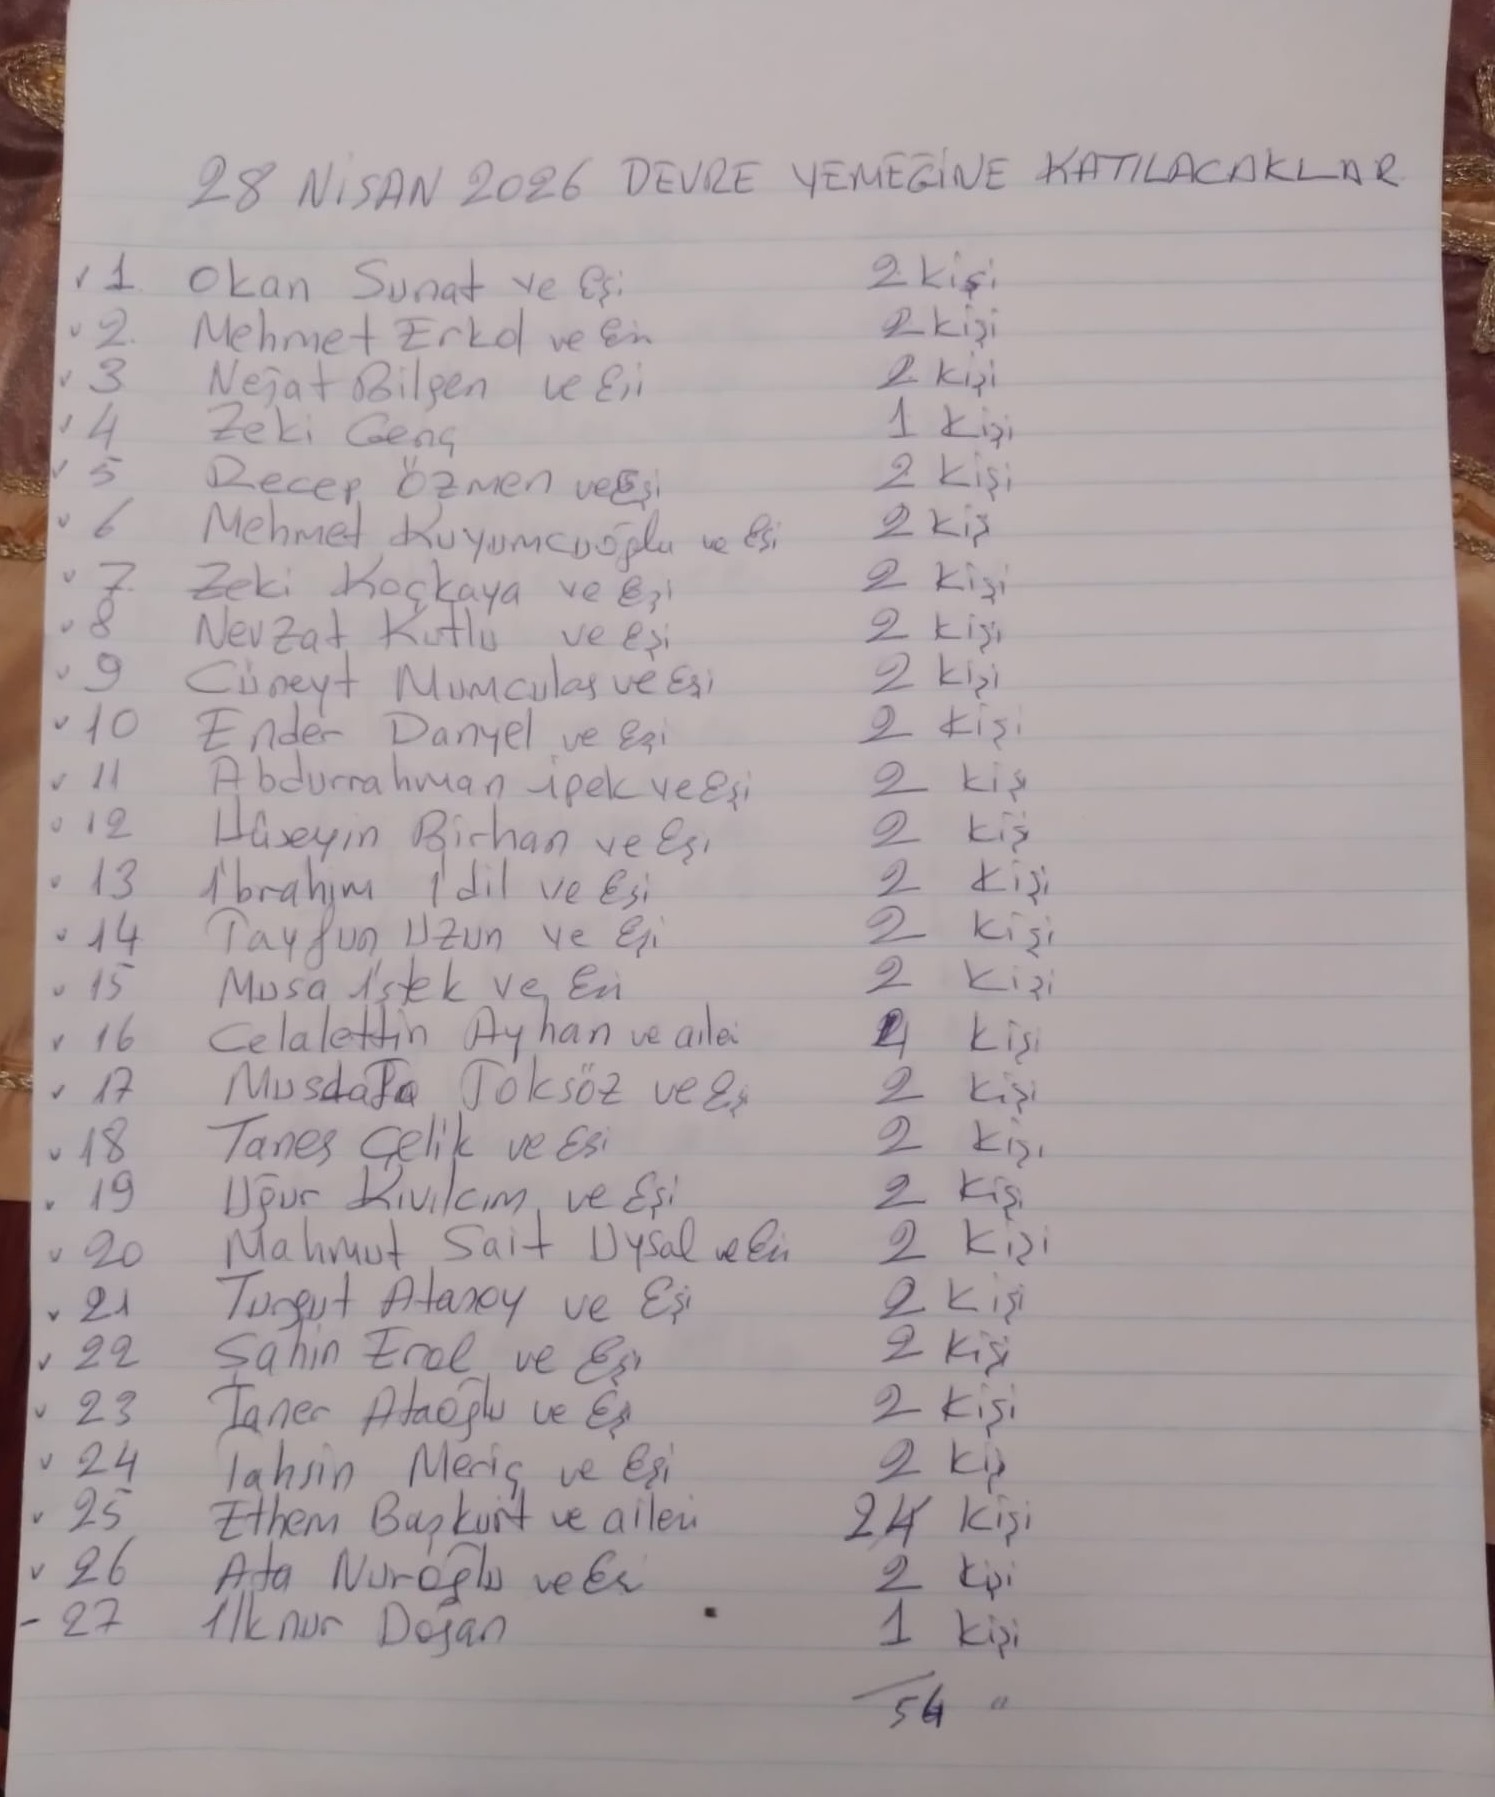 28 NİSAN 2026 DEVRE YEMEĞİNE KATILACAKLAR
1. Okan Sunat ve Eşi 2 kişi
2. Mehmet Erkol ve Eşi 2 kişi
3 Nejat Bilgen ve Eşi 2 kişi
4 Zeki Genç 1 kişi
5 Recep Özmen ve Eşi 2 kişi
6 Mehmet Kuyumcuoğlu ve Eşi 2 kişi
7. Zeki Koçkaya ve Eşi 2 kişi
8 Nevzat Kutlu ve Eşi 2 kişi
9 Cüneyt Mumcular ve Eşi 2 kişi
10 Ender Danyel ve Eşi 2 kişi
11 Abdurrahman ipek ve Eşi 2 kişi
12 Hüseyin Birhan ve Eşi 2 kişi
13 İbrahim İdil ve Eşi 2 kişi
14 Tayfun Uzun ve Eşi 2 kişi
15 Musa İstek ve Eşi 2 kişi
16 Celalettin Ayhan ve ailesi 4 kişi
17 Mustafa Toksöz ve Eşi 2 kişi
18 Taner Çelik ve Eşi 2 kişi
19 Uğur Kıvılcım ve Eşi 2 kişi
20 Mahmut Sait Uysal ve Eşi 2 kişi
21 Turgut Ataxoy ve Eşi 2 kişi
22 Şahin Erol ve Eşi 2 kişi
23 Taner Ataoğlu ve Eşi 2 kişi
24 Tahsin Meriç ve Eşi 2 kişi
25 Ethem Başkurt ve ailesi 2 4 kişi
26 Ata Nuroğlu ve Eşi 2 kişi
27 İlknur Doğan 1 kişi
54 "